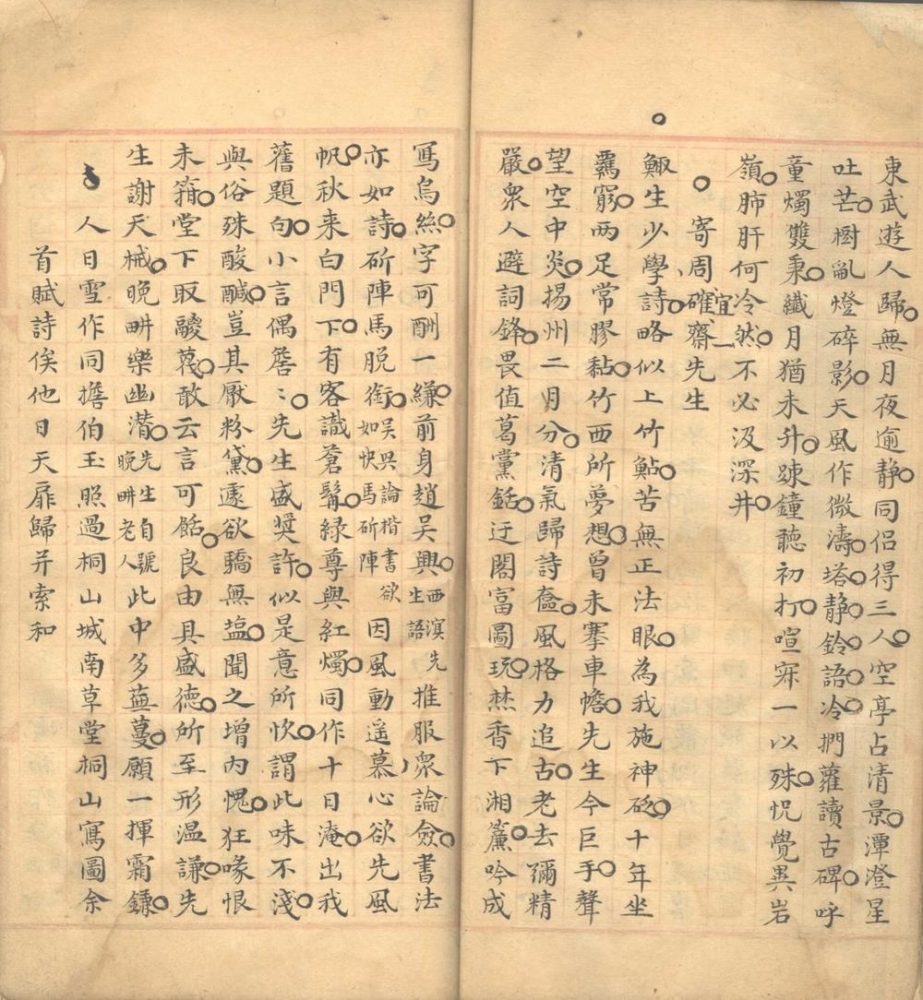 東武遊人歸無月夜逾静同侣得三人空亭占清景潭澄星
吐芒樹亂燈碎影天風作微濤塔静鈴語冷捫蘿讀古碑呼
童燭雙秉纖月猶未升疎鐘聽初打喧寂一以殊怳覺異岩
嶺肺肝何冷然不必汲深井
寄周確齋先生
宜一
鯫生少學詩略似上竹鮎苦無正法眼為我施神砭十年坐
羈窮两足常膠黏竹西所夢想曾未搴車幨先生今巨手聲
望空中炎揚州二月分清氣歸詩奩風格力追古老去彌精
嚴衆人避詞鋒畏值葛黨銛迂闊富圖玩焚香下湘簾吟成
寫烏絲字可酬一縑前身趙吳興西濱先生語推服衆論僉書法
亦如詩斫陣馬脱銜吴論楷書欲如快馬斫陣因風動遥慕心欲先風
帆秋来白門下有客識蒼髯緑尊與紅燭同作十日淹出我
舊題句小言偶詹〻先生盛奨許似是意所忺謂此味不淺
與俗殊酸醎豈其厭粉黛遽欲驕無塩聞之增内愧狂喙恨
未箝堂下取鬷蔑敢云言可餂良由具盛德所至形温謙先
生謝天械晚畊樂幽潛先生自號晚畊老人此中多蕪蔓願一揮霜鐮
人日雪作同擔伯玉照過桐山城南草堂桐山寫圖余
首賦詩俟他日天扉歸并索和